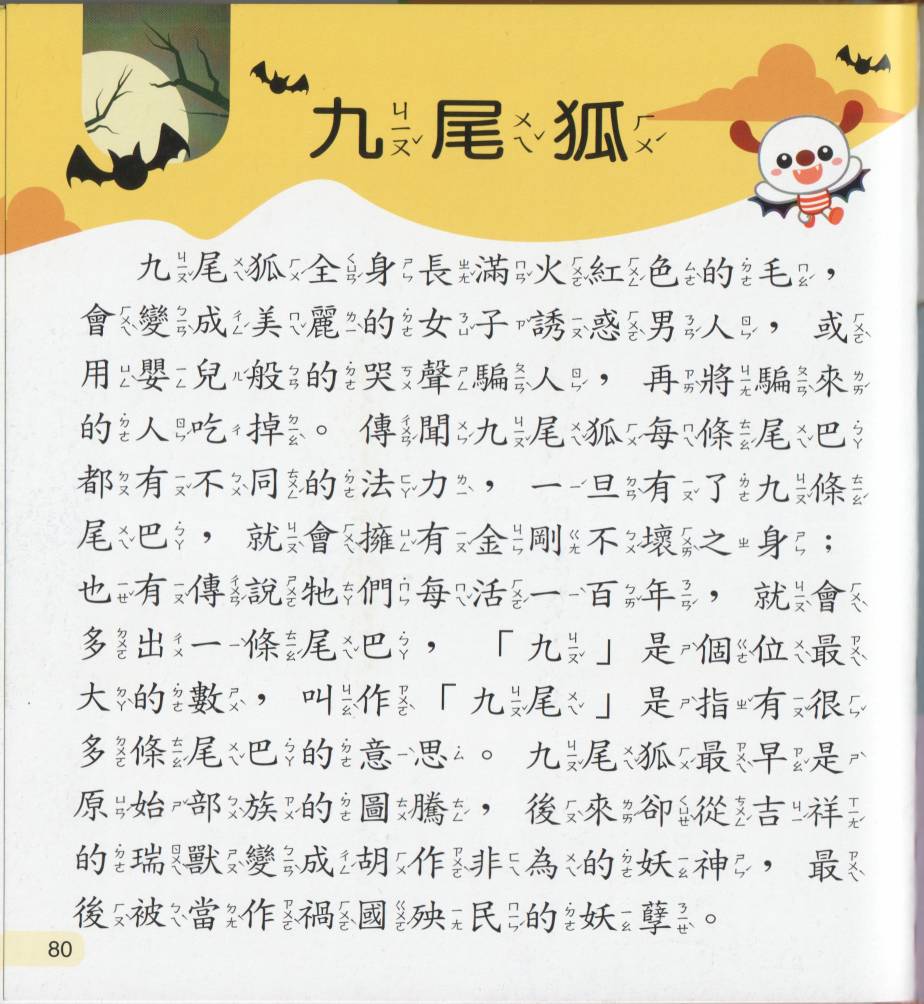 九尾狐
九尾狐全身長滿火紅色的毛，
會變成美麗的女子誘惑男人，或
用嬰兒般的哭聲騙人，再將騙來
的人吃掉。傳聞九尾狐每條尾巴
都有不同的法力，一旦有了九條
尾巴，就會擁有金剛不壞之身；
也有傳說牠們每活一百年，就會
多出一條尾巴，「九」是個位最
大的數，叫作「九尾」是指有很
多條尾巴的意思。九尾狐最早是
原始部族的圖騰，後來卻從吉祥
的瑞獸變成胡作非為的妖神，最
後被當作禍國殃民的妖孽。
80